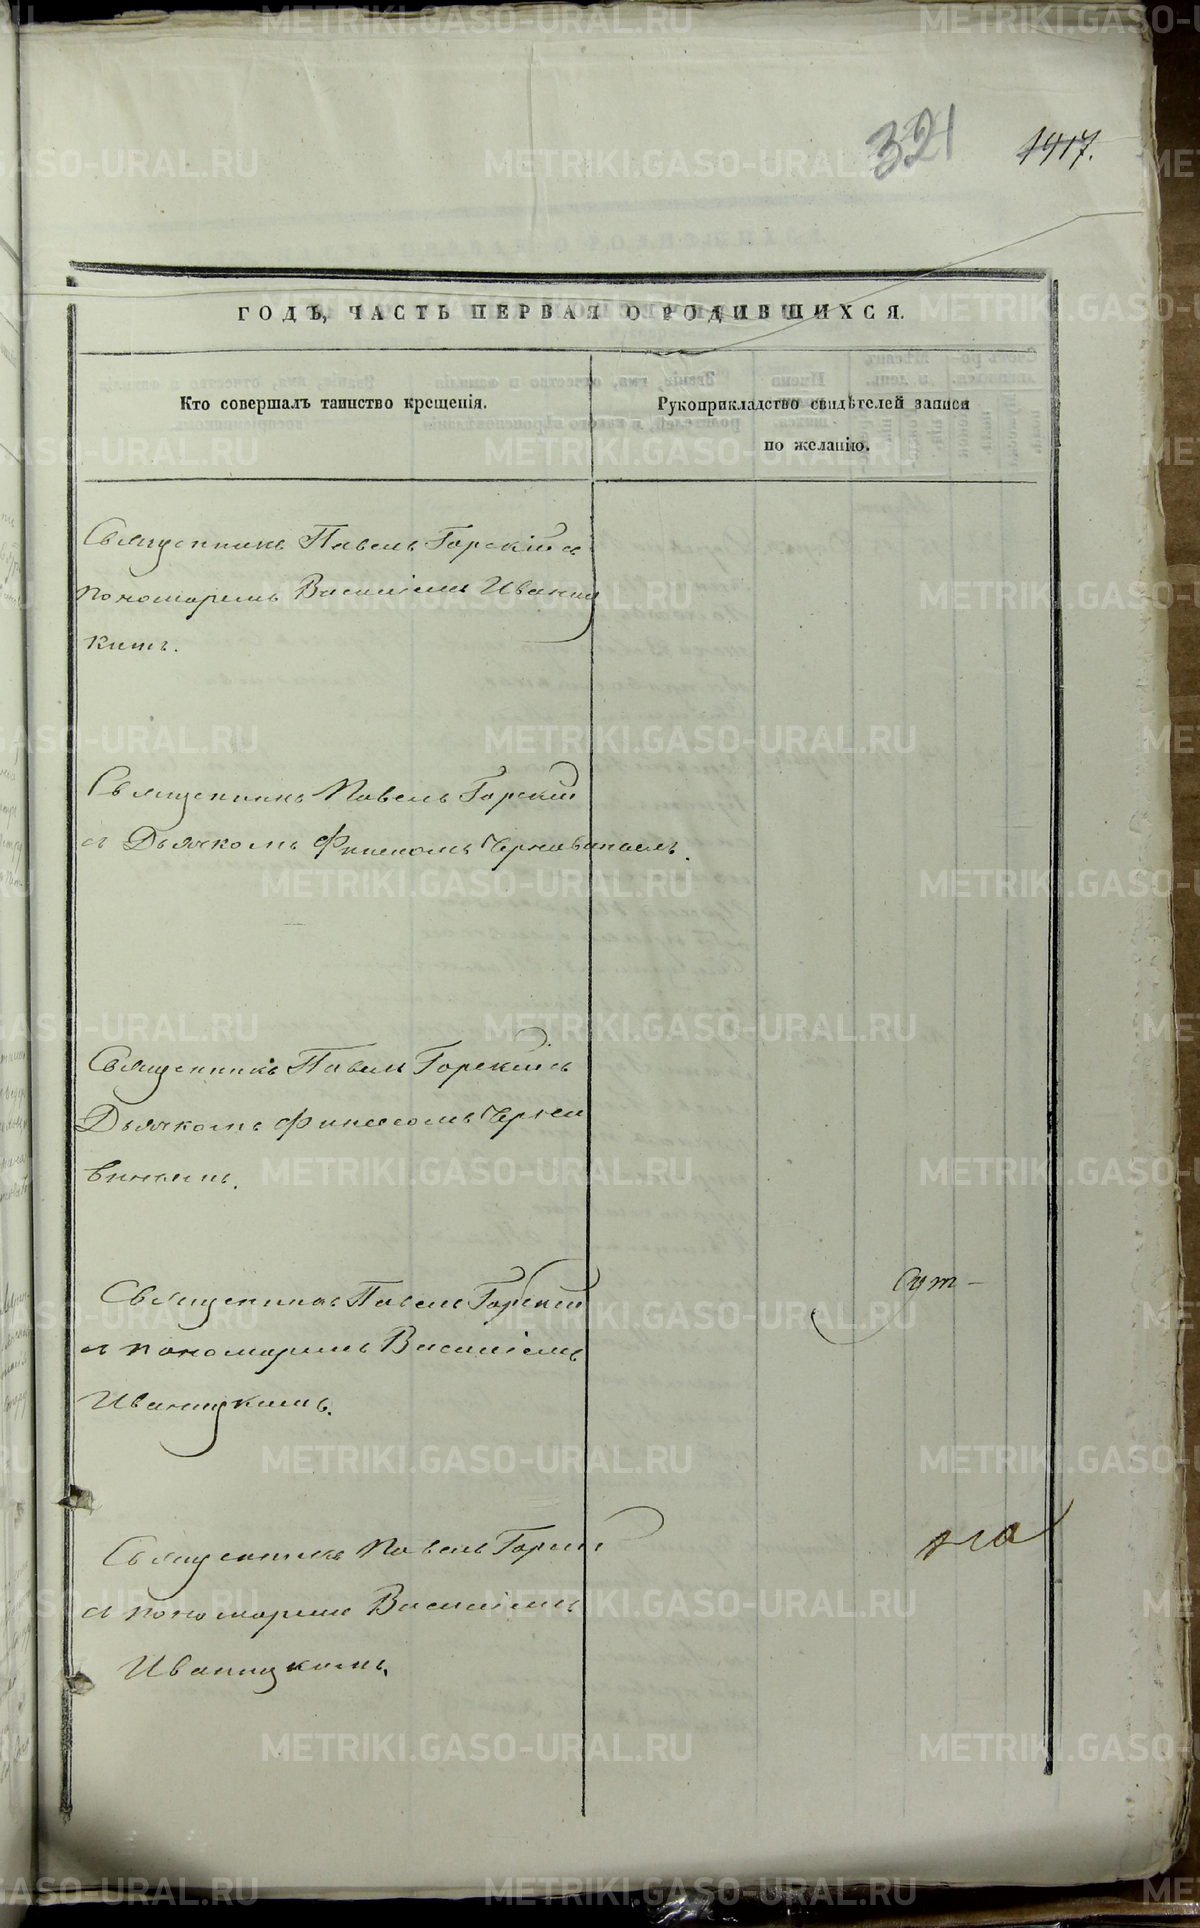 321 1417.
ГОДЪ, ЧАСТЬ ПЕРВАЯ О РОДИВШИХСЯ.
Кто совершалъ таинство крещенія.
Рукоприкладство свидѣтелей записи
по желанію.
Священникъ Павелъ Горскій съ
пономаремъ Василіемъ Иваниц
кимъ.
Священникъ Павелъ Горскій
съ Дьячкомъ Финеесомъ Чернавинымъ.
Священникъ Павелъ Горскій съ
Дьячкомъ Финеесомъ Черна
винымъ.
Священникъ Павелъ Горскій
съ пономаремъ Василіемъ
Иваницкимъ.
Священникъ Павелъ Горскій
съ пономаремъ Василіемъ
Иваницкимъ.
METRIKI.GASO-URAL.RU